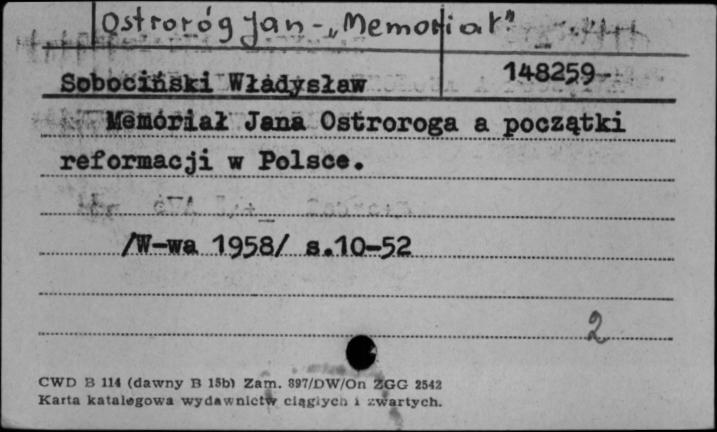 Ostroróg Jan - „Memoriał"
Sobociński Władysław 148259-
Memoriał Jana Ostroroga a początki
reformacji w Polsce.
/W-wa 1958/ s.10-52
2
CWD B 114 (dawny B 15b) Zam. 897/DW/On ZGG 2542
Karta katalogowa wydawnictw ciągłych i zwartych.